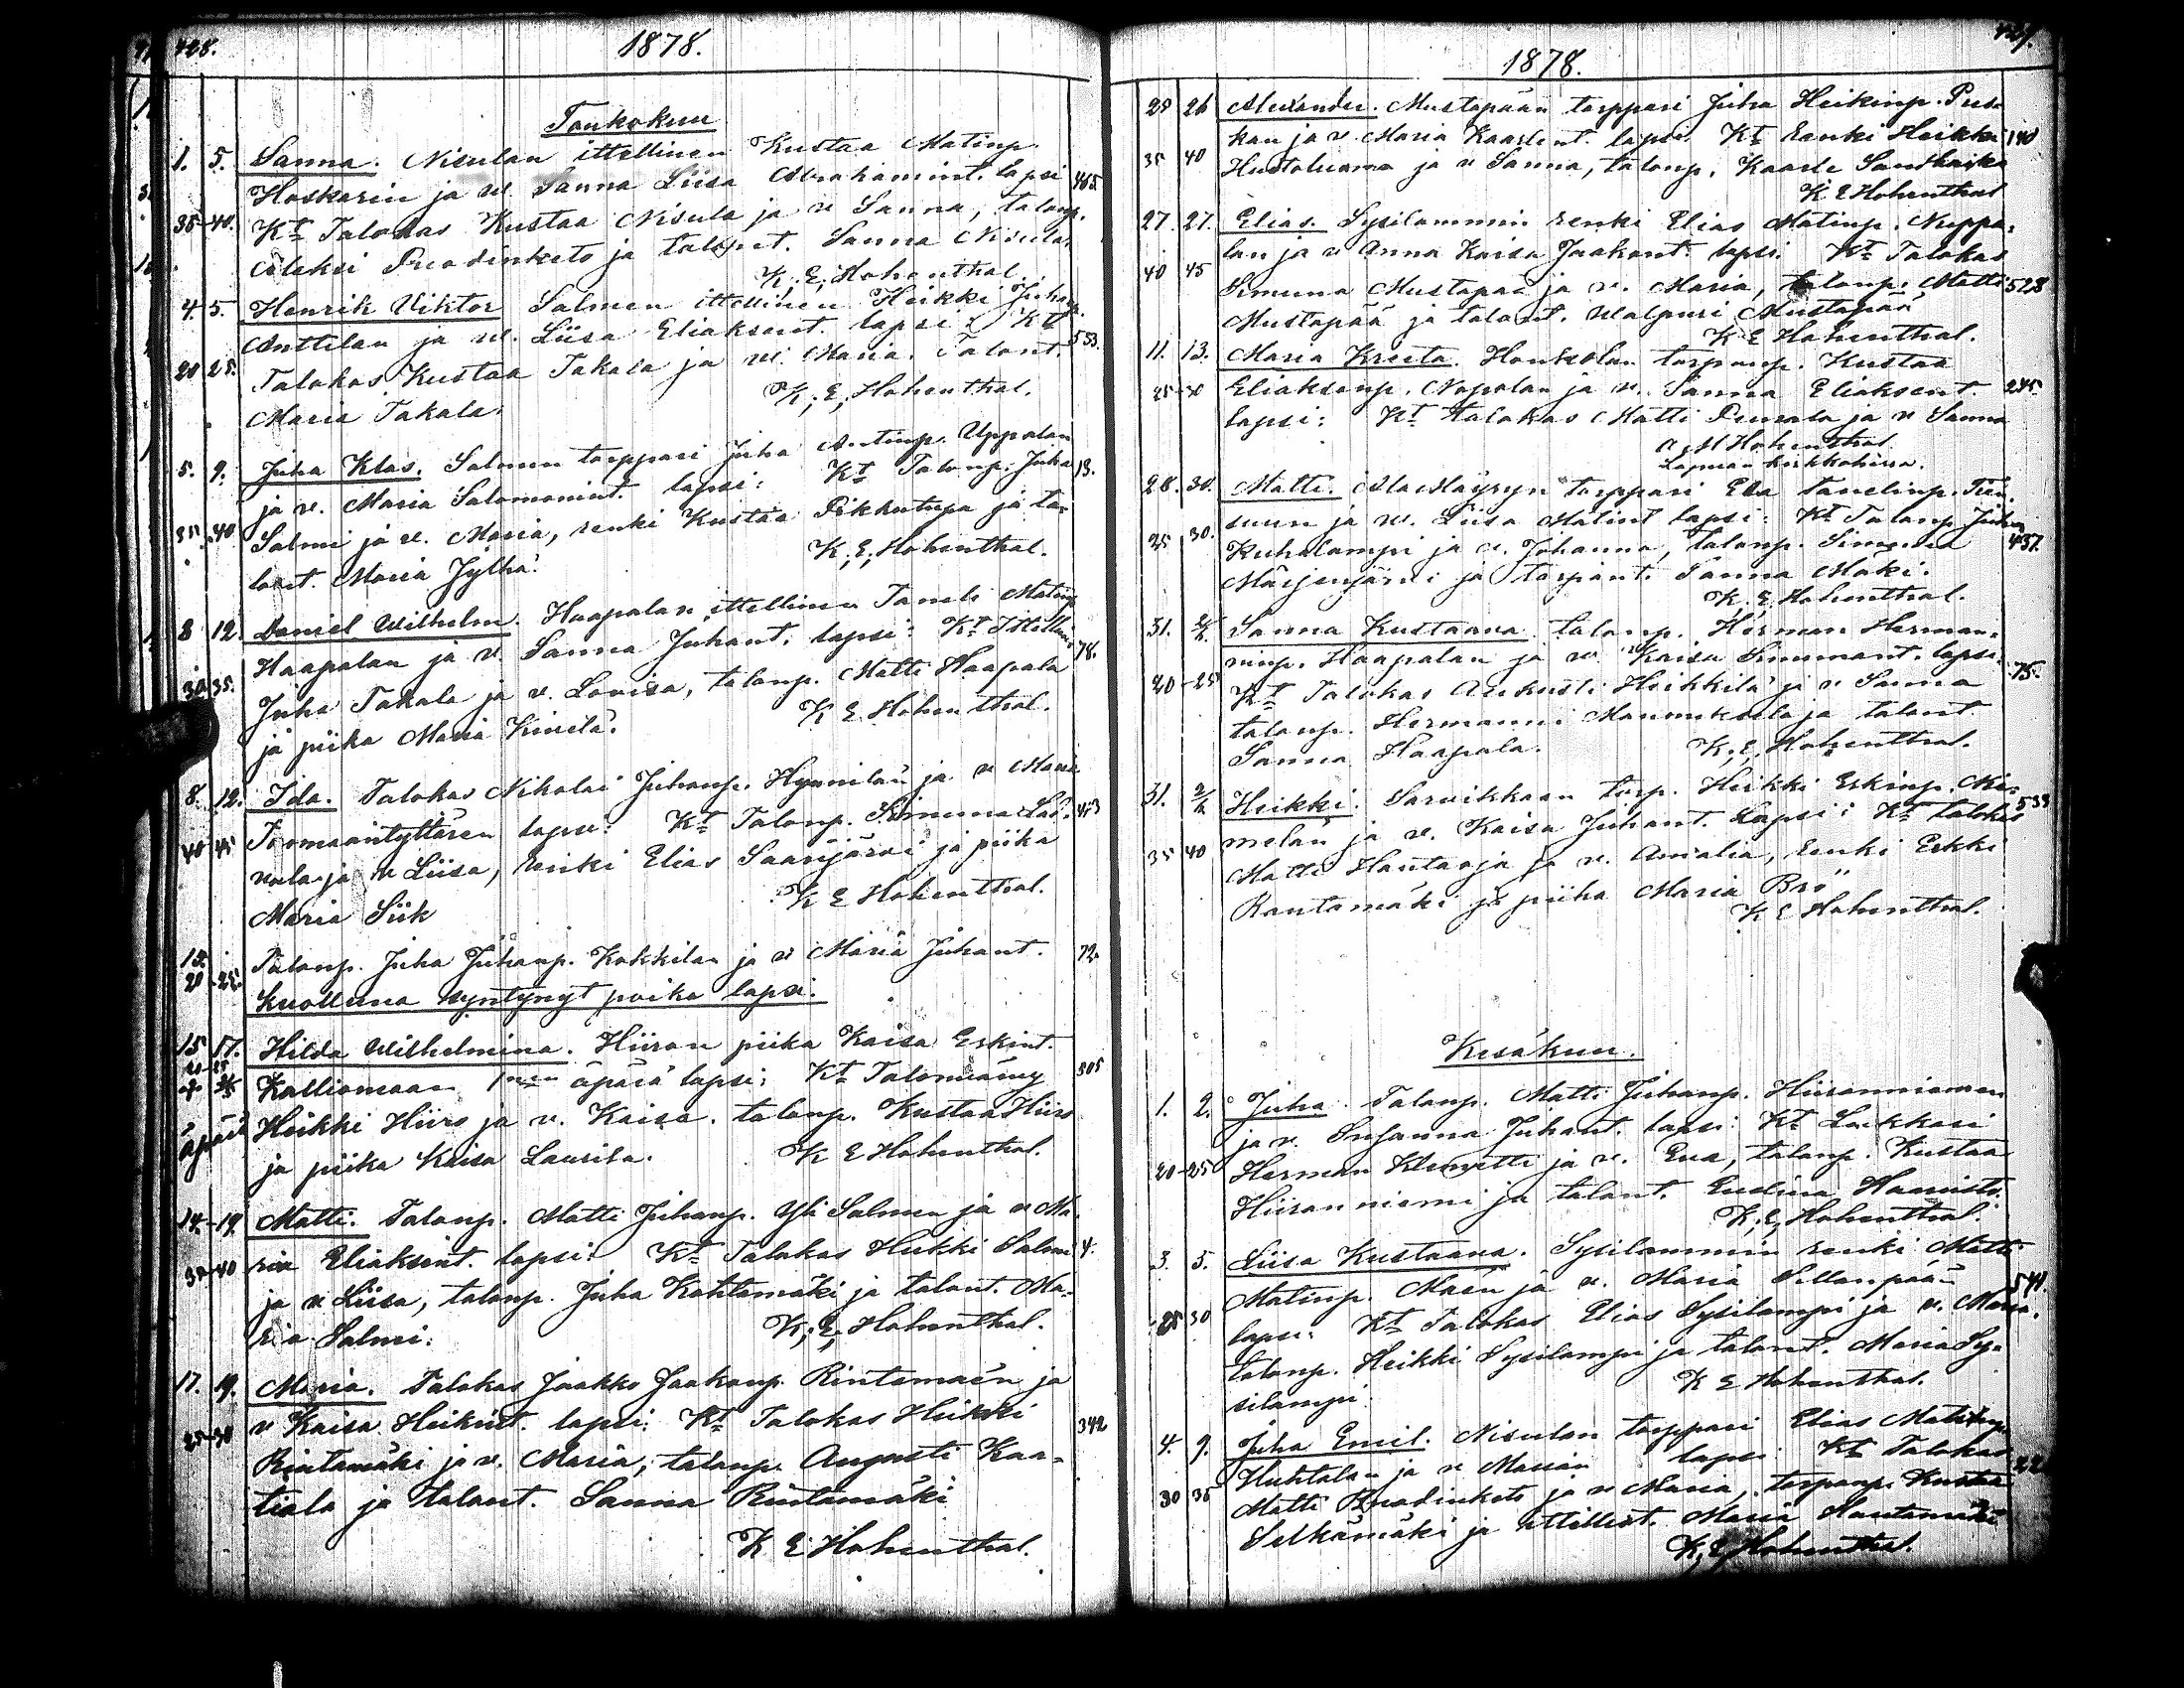 428.
1878.
Toukokuu
1. 5. Sanna. Nisulan ittellinen Kustaa Matinp.
Hoskarin ja w. Sanna Liisa Abrahamint. lapsi 465.
35-40. Kt Talokas Kustaa Nisula ja w Sanna, talonp.
Aleksi Pruadinketo ja talont. Sanna Nisula.
K. E. Hohenthal.
4. 5. Henrik Viktor Salmen ittellinen Heikki Juhanp.
Anttilan ja w. Liisa Eliaksent. lapsi: Kt 553.
20 25. Talokas Kustaa Takala ja w. Maria. Talont.
Maria Takala. K. E. Hohenthal.
5. 9. Juha Klas. Salmen torppari Juha Antinp. Uppalan
ja w. Maria Salomonint. lapsi: Kt Talonp. Juha 13.
35. 40 Salmi ja w. Maria, renki Kustaa Pikkutupa ja ta-
lont. Maria Jylhä. K. E. Hohenthal.
8 12. Daniel Wilhelm. Haapalan ittellinen Taneli Matinp
Haapalan ja w. Sanna Juhant. lapsi: Kt Ittellin. 78.
30 35. Juha Takala ja w. Lovisa, talonp. Matti Haapala
ja piika Maria Kivelä. K E Hohenthal.
8. 12. Ida. Talokas Nikolai Juhanp. Hynnilän ja w Maria
Toomaantyttären lapsi: Kt Talonp. Simuna 453
40 45 ja w Liisa, renki Elias Saarijärvi ja piika
Maria Siik K E Hohenthal.
12. Talonp. Juha Juhanp. Kokkilan ja w Maria Juhant. 72.
20-25. Kuolluna syntynyt poika lapsi.
15 17. Hilda Wilhelmina. Hiiron piika Kaisa Erkint.
20-25 Kalliomaan 1nen äpärä lapsi; Kt Talonvävy 305
äpärä Heikki Hiiro ja w. Kaisa. talonp. Kustaa Hiiro
ja piika Kaisa Laurila. K E Hohenthal.
14-19. Matti. Talonp. Matti Juhanp. Yli Salmen ja w Ma-
ria Eliaksint. lapsi: Kt Talokas Heikki Salmi 4.
40 ja w Liisa, talonp. Juha Kohtamäki ja talont. Ma-
ria Salmi. K. E. Hohenthal.
17. 19. Maria. Talokas Jaakko Jaakonp. Rintamäen ja
w Kaisa Heikint. lapsi: Kt Talokas Heikki 342
25-30 Rintamäki ja w. Maria, talonp. Augusti Kaa-
tiala ja talont. Sanna Rintamäki
K E Hohenthal.
1878.
25 26 Alexander. Mustapään torppari Juha Heikinp.
kan ja w Maria Kaarlent. lapsi. Kt Renki Heikki 140
35 40 Huotaluoma ja w Sanna, talonp. Kaarle
K E Hohenthal
27. 27. Elias. Sysilammin renki Elias Matinp. Neppa-
lan ja w Anna Kaisa Jaakont. lapsi. Kt Talokas
40 45 Simuna Mustapää ja w. Maria, talonp. Matti 528
Mustapää ja talont. Walpuri Mustapää
K E Hohenthal.
11. 13. Maria Kreeta. Honkolan torpanp. Kustaa
Eliaksenp. Napolan ja w. Sanna Eliaksent. 245.
lapsi: Kt talokas Matti Peurala ja w Sanna
Hohenthal
Lapuan kirkkoherra.
28. 30. Matti. AlaMäyryn torppari Elia Tanelinp.
ja w. Liisa Matint lapsi: Kt Talonp Juha
25 30. Kuhalampi ja w. Johanna, talonp. Simuna 437.
Märjenjärvi ja torpant. Sanna Mäki.
K. E. Hohenthal.
31. Sanna Kustaava talonp. Herman Herman-
ninp. Haapalan ja w. Kaisa Simunant. lapsi.
20-25 Kt Talokas Aukusti Heikkilä ja w Sanna 75.
talonp. Hermanni Mannikkola ja talont.
Sanna Haapala. K. E. Hohenthal.
31. Heikki. Sarvikkaan torp. Heikki Erkinp. Ni-
melän ja w. Kaisa Juhant. Lapsi: Kt talokas 533
35 40 Matti Hautaoja ja w. Amalia, renki Erkki
Rantamäki ja piika Maria Brö
K E Hohenthal.
Kesäkuu.
1. 2. Juha. Talonp. Matti Juhanp. Hiironniemen
ja w. Susanna Juhant. lapsi: Kt Lukkari
20-25 Herman Klemetti ja w. Eva, talonp. Kustaa
Hiironniemi ja talont. Eveliina Haavisto.
K. E. Hohenthal.
3. 5. Liisa Kustaava. Sysilammin renki Matti
Matinp. Mäen ja w. Maria Sillanpään 541.
25 30 lapsi: Kt Talokas Elias Sysilampi ja w. Maria.
talonp. Heikki Sysilampi ja talont. Maria Sy-
silampi. K E Hohenthal.
4. 9. Juha Emil. Nisulan torppari Elias Matinp
Huhtalan ja w Marian lapsi Kt Talokas 22
30 35 Matti Pruadinketo ja w Maria, torpanp. Kustaa
Selkämäki ja ittellist. Maria Hautamäki
K. E. Hohenthal.